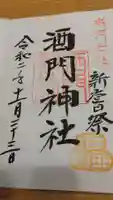 新嘗祭
酒門神社
令和二年十一月二十三日